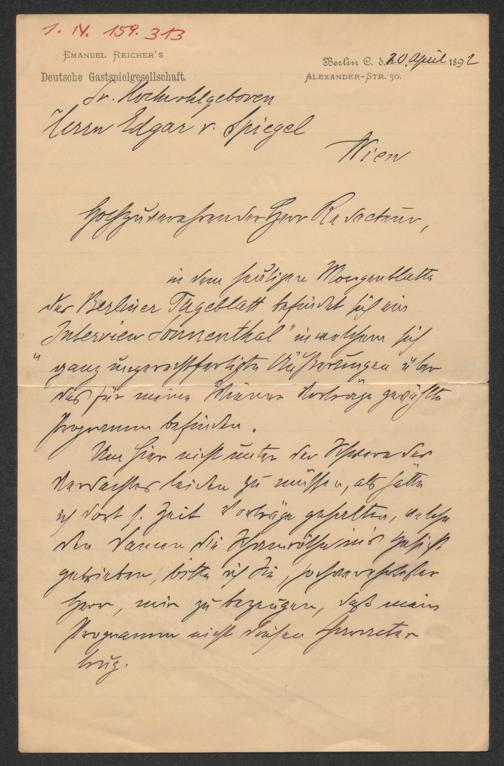 1. N. 159.313
EMANUEL REICHER'S
Deutsche Gastspielgesellschaft.
Berlin C. d. 20 April 1892
ALEXANDER-STR. 30.
Sr. Hochwohlgeboren
Herrn Edgar v. Spiegel
Wien
Hochzuverehrender Herr Redacteur,
in dem heutigen Morgenblatte
des Berliner Tageblatt befindet sich ein
"Interview Sonnenthal" in welchem sich
ganz ungerechtfertigte Äußerungen über
das für meine Wiener Vorträge gewählte
Programm befinden.
Um hier nicht unter der Schwere des
Verdachtes leiden zu müssen, als hätte
ich dort s. Zeit Vorträge gehalten, welche
den Damen die Schamröthe ins Gesicht
getrieben, bitte ich Sie, hochverehrter
Herr, mir zu bezeugen, daß mein
Programm nicht diesen Charakter
trug.